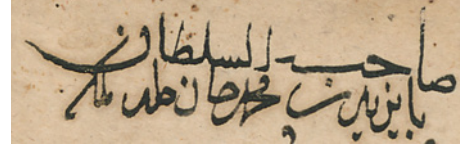 صاحبه السلطان
بايزيد بن محمد خان خلد ملكه